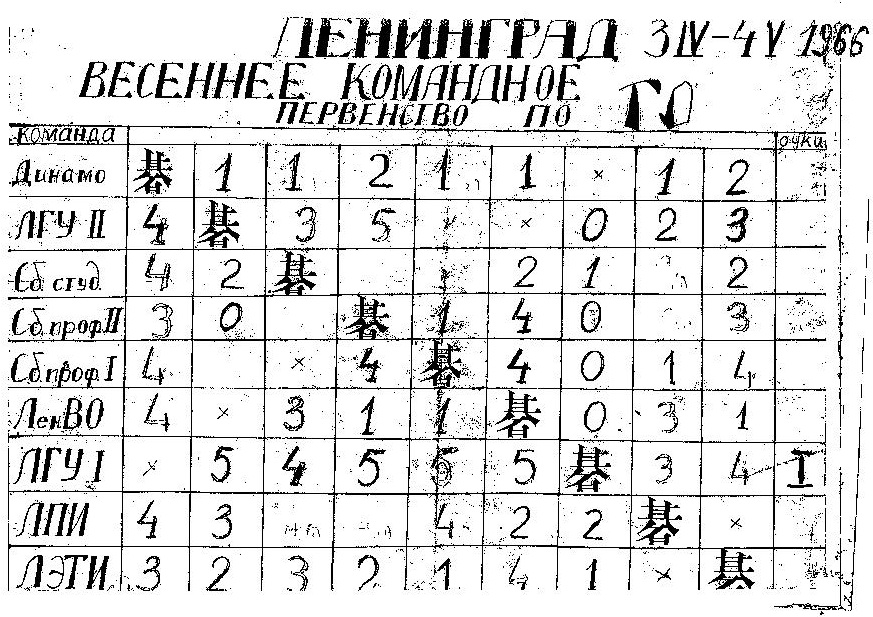 ЛЕНИНГРАД 3 IV-4 V 1966
ВЕСЕННЕЕ КОМАНДНОЕ
ПЕРВЕНСТВО ПО ГО
команда очки
Динамо 碁 1 1 2 1 1 × 1 2
ЛГУ II 4 碁 3 5 × 0 2 3
Сб. студ. 4 2 碁 2 1 2
Сб. проф. II 3 0 碁 1 4 0 3
Сб. проф. I 4 × 4 碁 4 0 1 4
ЛенВО 4 × 3 1 1 碁 0 3 1
ЛГУ I × 5 4 5 5 5 碁 3 4 I
ЛПИ 4 3 4 2 2 碁 ×
ЛЭТИ 3 2 3 2 1 4 1 × 碁